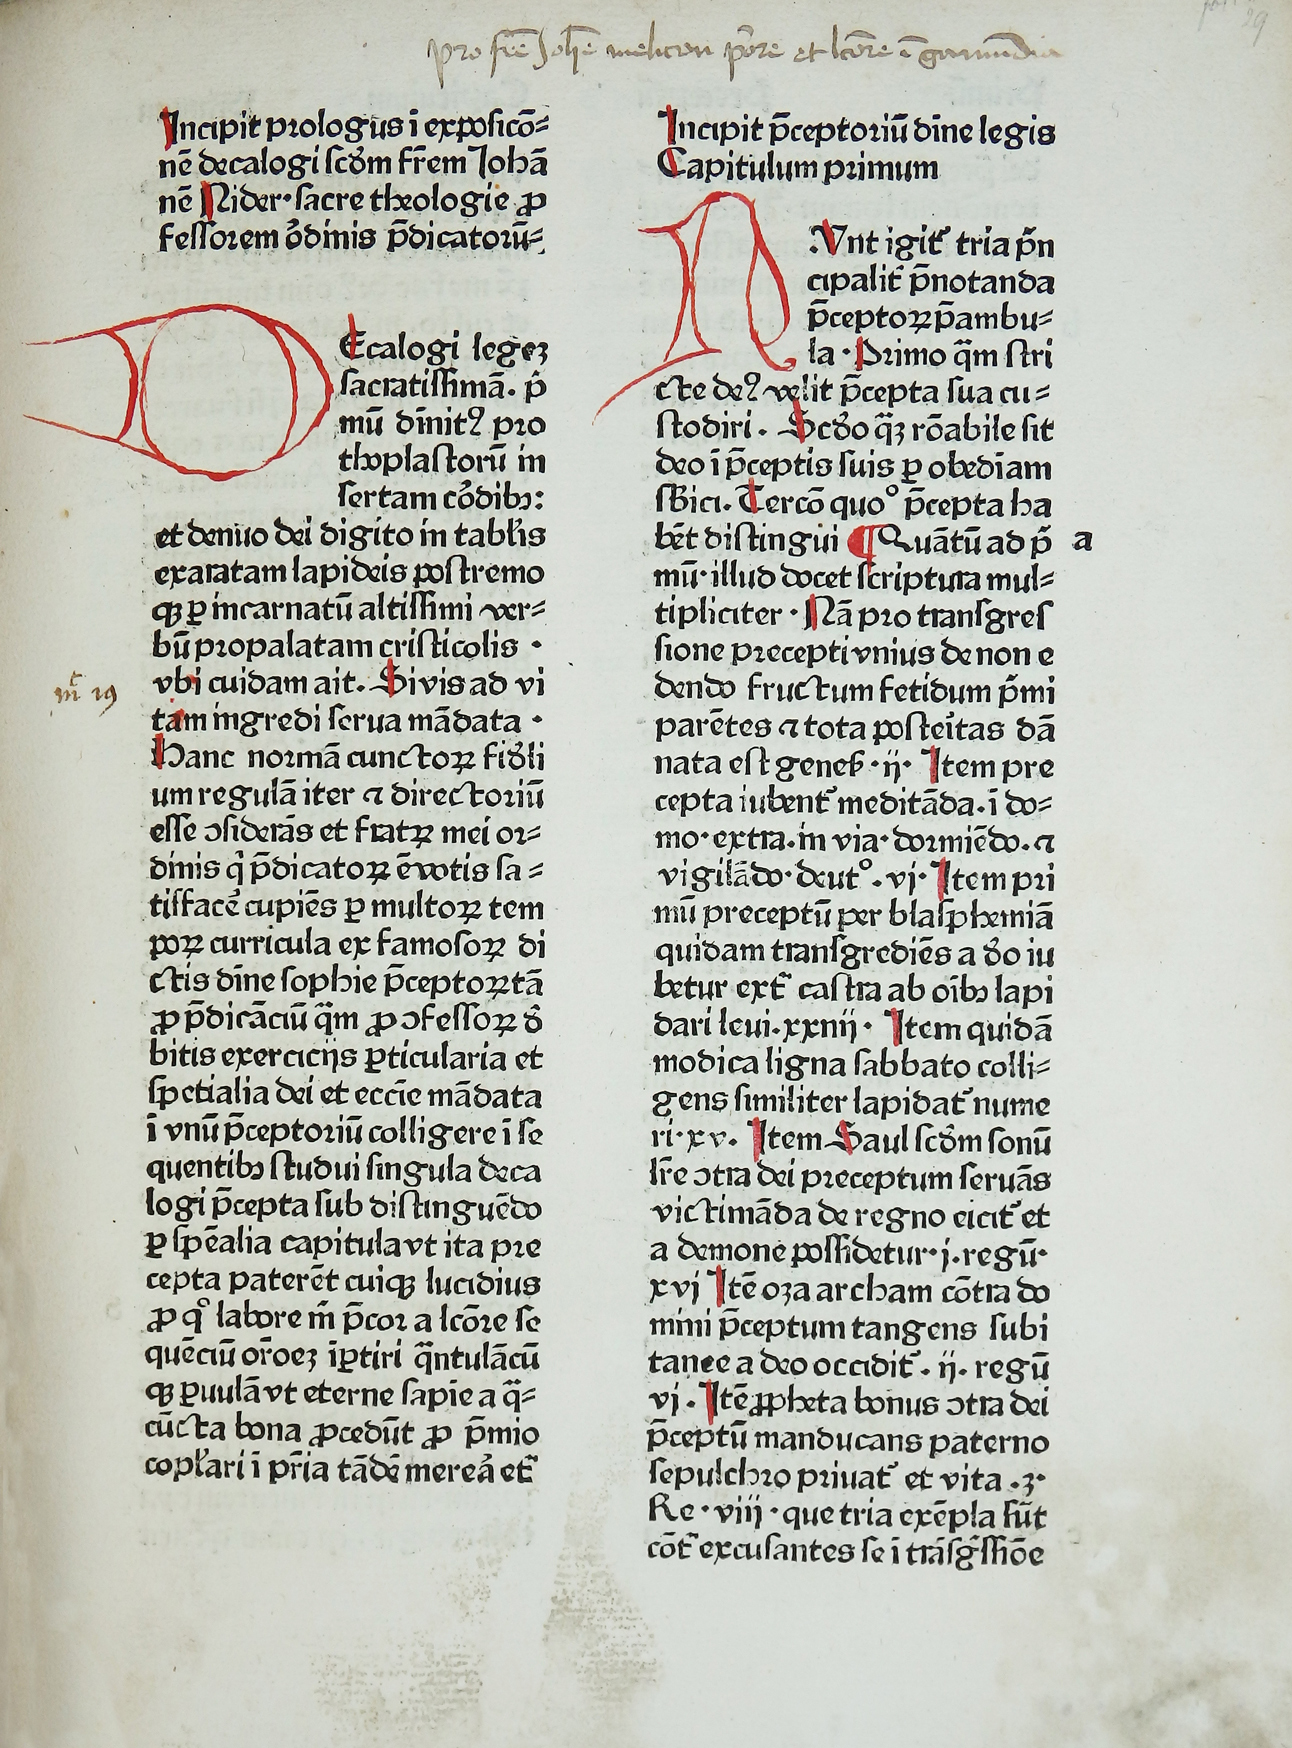 pro fr̄e Joh̄e melicen p̄ore et lc̄ore ī gamundia
29
Incipit prologus ī exposicō=
nē decalogi scd̄m fr̄em Johā
nē Nider·sacre theologie ꝓ
fessorem ōdinis p̄dicatorū=
DEcalogi legeꝫ
sacratissimā. p̄
mū dīnitꝰ pro
thoplastorū in
sertam cōdibꝫ:
et denuo dei digito in tabl̄is
exaratam lapideis postremo
qꝫ ꝑ incarnatū altissimi ver=
bū propalatam cristicolis ·
vbi cuidam ait. Si vis ad vi
m͞t 19
tam ingredi serua mādata ·
Hanc normā cunctoꝝ fid̄li
um regulā iter ⁊ directoriū
esse ↄsiderās et fratꝝ mei or=
dinis q̄ p̄dicatoꝝ ē votis sa=
tiſfac̄e cupiēs ꝑ multoꝝ tem
poꝝ curricula ex famosoꝝ di
ctis dīne sophie p̄ceptoꝝ tā
ꝓ p̄dicāciū q̄m ꝓ ↄfessoꝝ d̄
bitis exercicijs ꝑticularia et
spetialia dei et eccīe mādata
ī vnū p̄ceptoriū colligere ī se
quentibꝫ studui singula deca
logi p̄cepta sub distinguēdo
ꝑ spēalia capitula vt ita pre
cepta paterēt cuiqꝫ lucidius
ꝓ qͦ labore m̄ p̄cor a lcōre se
quēciū orōeꝫ īꝑtiri q̄ntulācū
qꝫ ꝑuulā vt eterne sapīe a q̄=
cūcta bona ꝓcedūt ꝓ p̄mio
copl̄ari ī pr̄ia tādē mereā et̄
Incipit p̄ceptoriū dīne legis
Capitulum primum
.Vnt igit̄ tria p̄n
cipalit̄ p̄notanda
p̄ceptoꝝ p̄ambu=
la · Primo q̄m stri
cte deꝰ velit p̄cepta sua cu=
stodiri. Scd̄o q̄ꝫ rōabile sit
deo ī p̄ceptis suis ꝑ obediam
sb̄ici. Tercō quoͦ p̄cepta ha
bēt distingui ¶ Quātū ad p̄
a
mū·illud docet scriptura mul=
tipliciter · Nā pro transgreſ
sione precepti vnius de non e
dendo fructum fetidum p̄mi
parētes ⁊ tota posteītas dā
nata est genes̄·ij· Item pre
cepta iubent̄ meditāda. ī do=
mo·extra.in via·dormiēdo.⁊
vigilādo·deutͦ.vj· Item pri
mū preceptū per blasphemiā
quidam transgrediēs a d̄o iu
betur ext̄ castra ab oībꝫ lapi
dari leui.xxnij· Item quidā
modica ligna sabbato colli=
gens similiter lapidat̄ nume
ri·xv. Item Saul scd̄m sonū
lr̄e ↄtra dei preceptum seruās
victimāda de regno eicit̄ et
a demone possidetur·j.regū·
xvj Itē oza archam cōtra do
mini p̄ceptum tangens subi
tanee a deo occidit̄. ij. regū
vj. Itē ꝓpheta bonus ↄtra dei
p̄ceptū manducans paterno
sepulchro priuat̄ et vita .3·
Re·viij·que tria exēpla sūt
cōt̄ excusantes se ī trāsḡssiōe